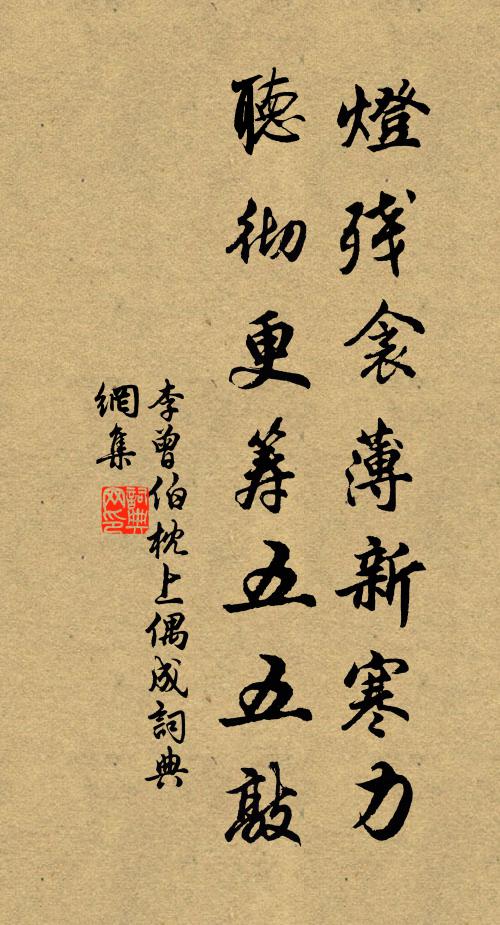 燈残衾薄新寒力
聽彻更筹五五敲
李曾伯枕上偶成詞典
網集
詞典网印